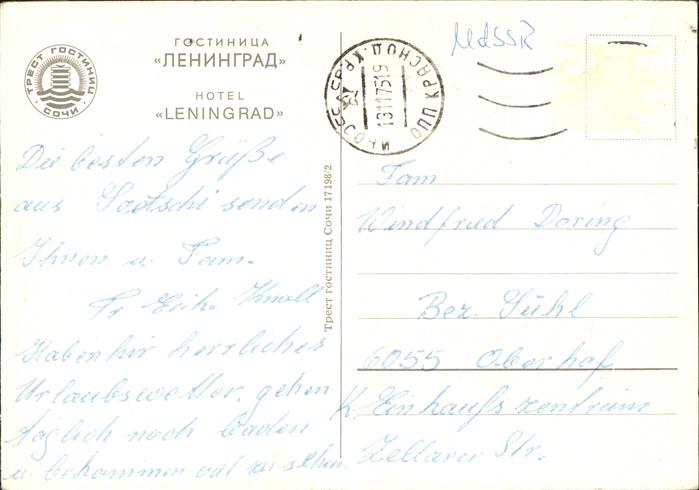 ТРЕСТ ГОСТИНИЦ
СОЧИ
ГОСТИНИЦА
«ЛЕНИНГРАД»
HOTEL
«LENINGRAD»
Die besten Grüße
aus Sotschi senden
Ihnen u. Fam.
Fr. Knoll
Haben hir herrliches
Urlaubswetter. gehen
täglich noch baden
u. bekommen viel zu sehen.
Трест гостиниц Сочи 17198/2
СОЧИ
КРАСНОД. КР.
13117519
UdSSR
Fam
Windfried Döring
Bez. Suhl
6055 Oberhof
K. Einkaufszentrum
Zellaer Str.